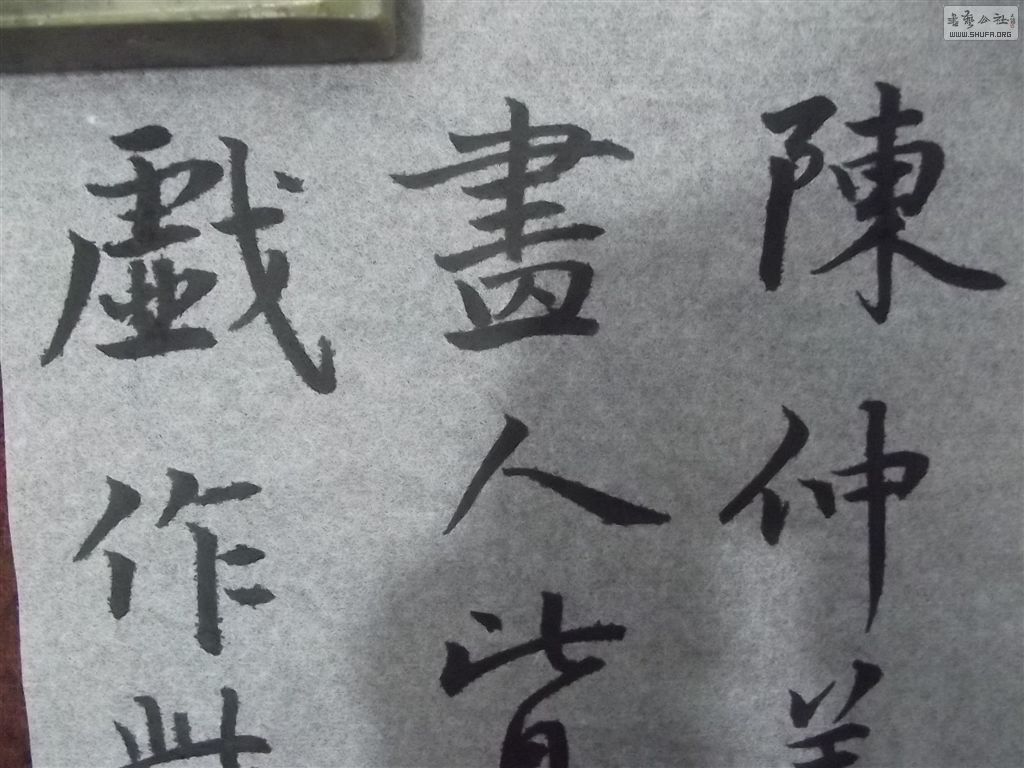 陳仲美
畫人皆
戲作
書藝公社
WWW.SHUFA.ORG